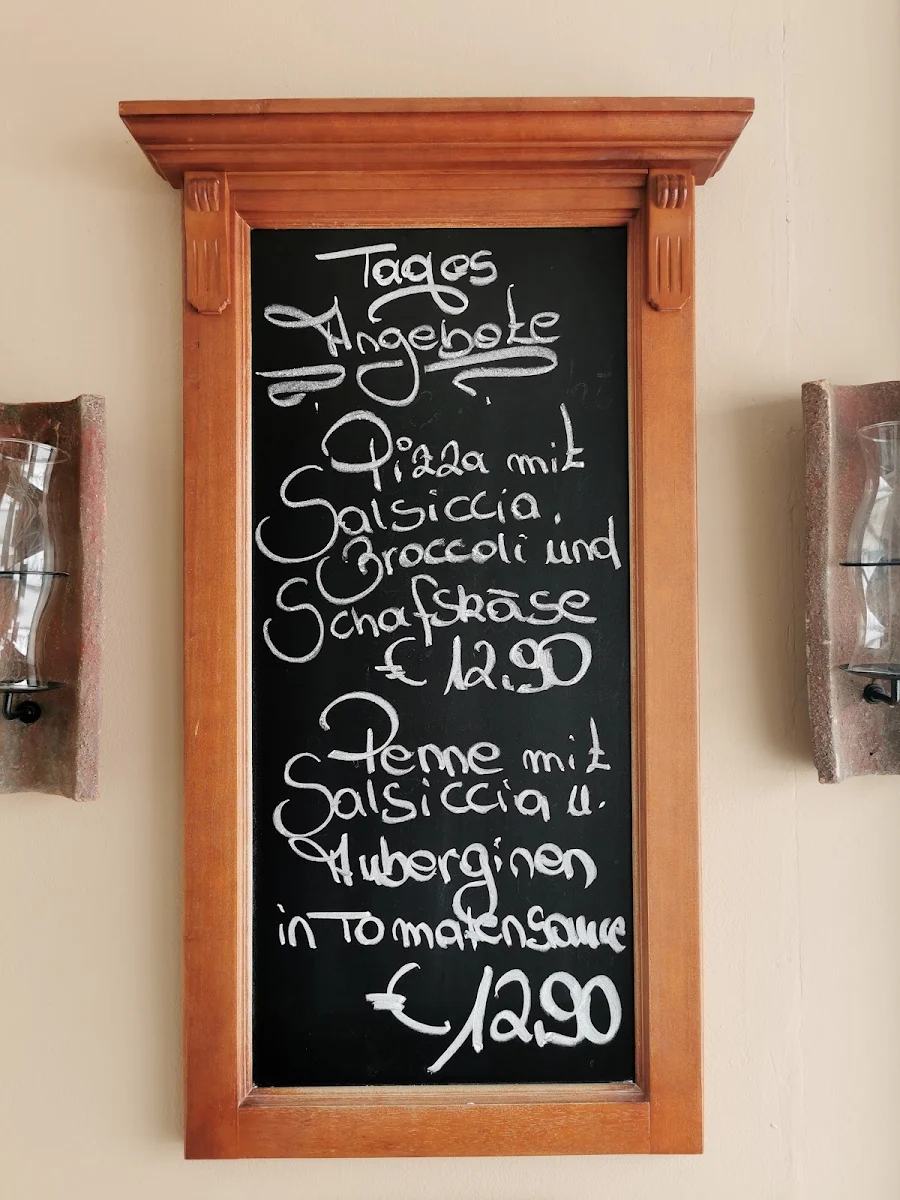 Tages
Angebote
Pizza mit
Salsiccia,
Broccoli und
Schafskäse
€ 12,90
Penne mit
Salsiccia u.
Auberginen
in Tomatensauce
€ 12,90